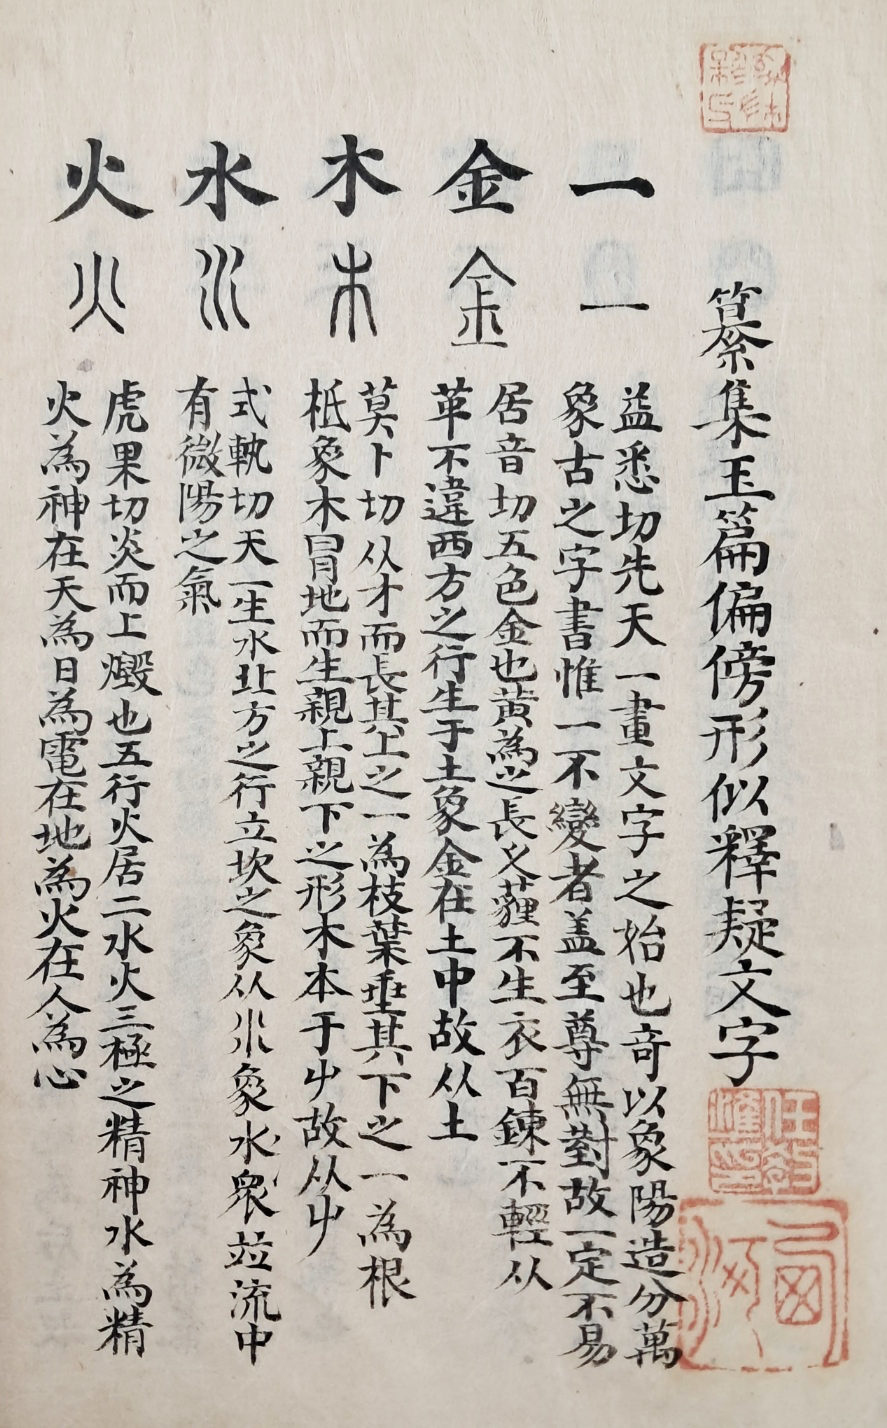 纂集玉篇偏傍形似釋疑文字
一
一
益悉切先天一畫文字之始也奇以象陽造分萬
象古之字書惟一不變者盖至尊無對故一定不易
金
金
居音切五色金也黄為之長久薶不生衣百鍊不輕从
革不違西方之行生于土象金在土中故从土
木
木
莫卜切从才而長其上之一為枝葉垂其下之一為根
柢象木冒地而生親上親下之形木本于屮故从屮
水
水
式執切天一生水北方之行立坎之象从水象水衆並流中
有微陽之氣
火
火
虎果切炎而上燬也五行火居二水火三極之精神水為精
火為神在天為日為電在地為火在人為心